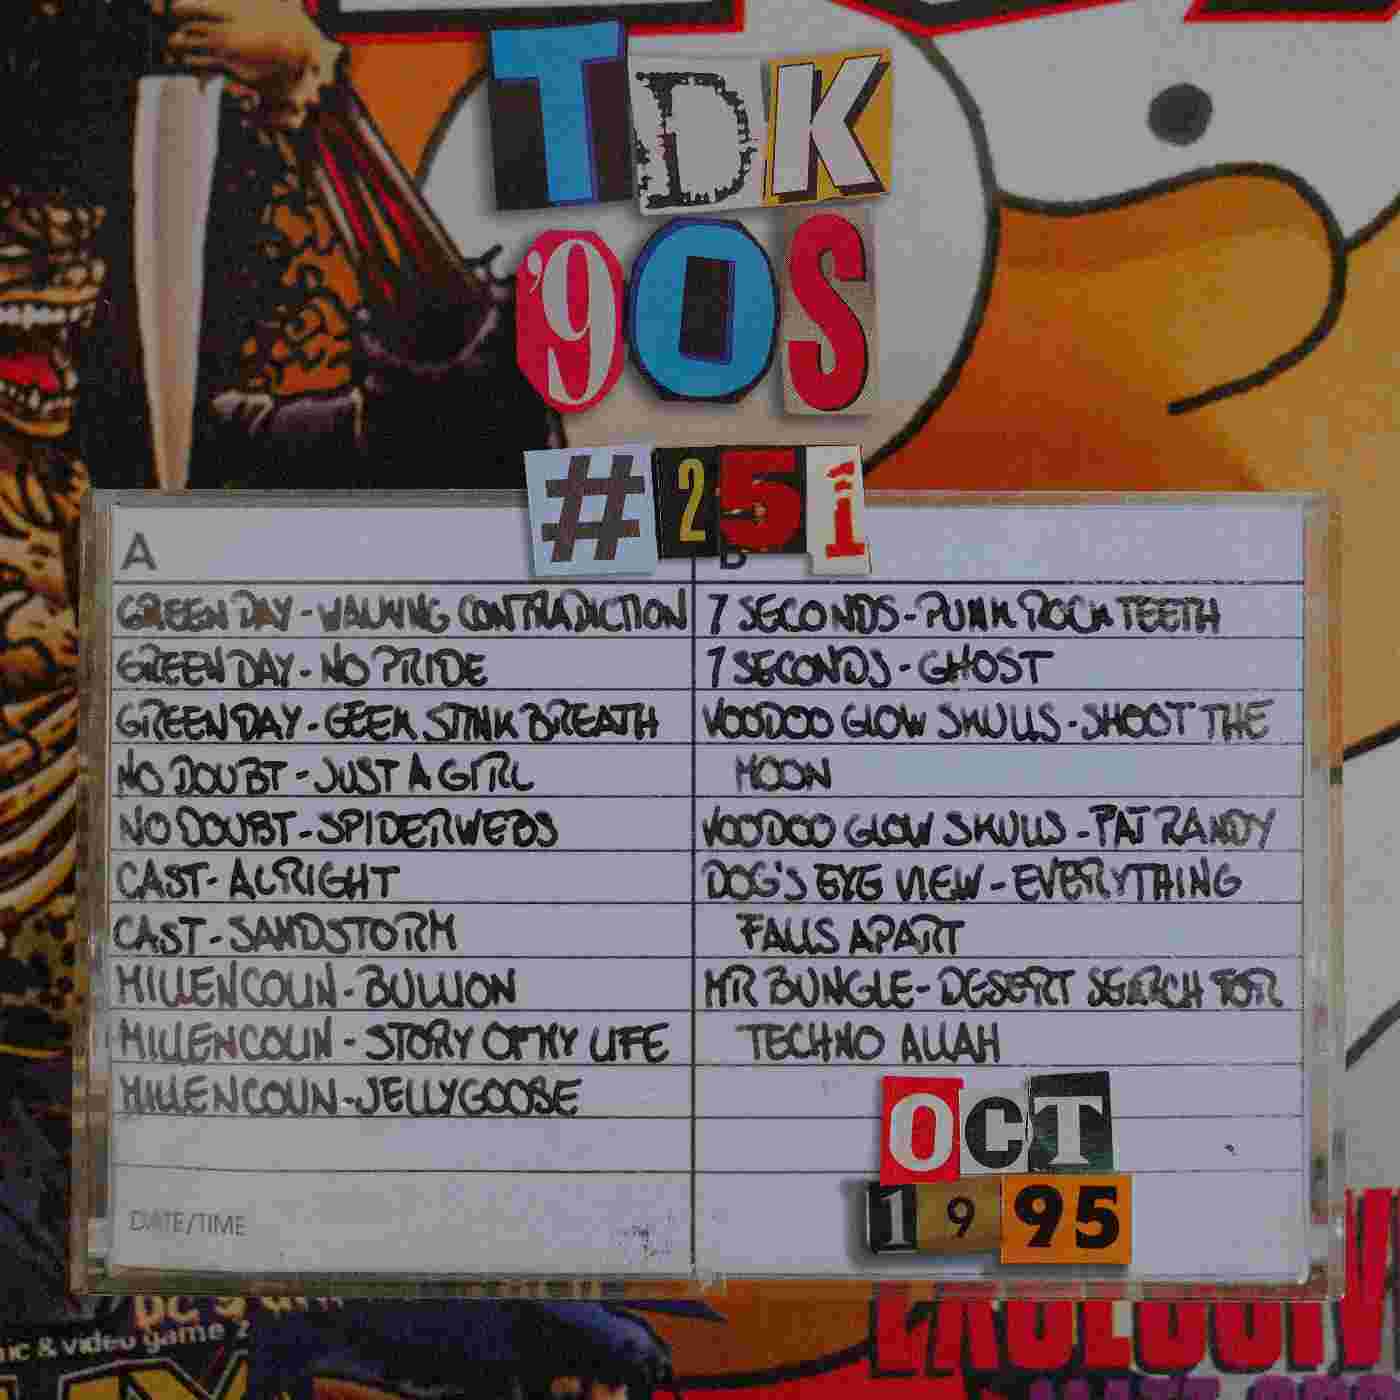 TDK
'90S
#25i
A
B
GREEN DAY - WALKING CONTRADICTION
GREEN DAY - NO PRIDE
GREEN DAY - GEEK STINK BREATH
NO DOUBT - JUST A GIRL
NO DOUBT - SPIDERWEBS
CAST - ALRIGHT
CAST - SANDSTORM
MILLENCOLIN - BULLION
MILLENCOLIN - STORY OF MY LIFE
MILLENCOLIN - JELLYGOOSE
DATE/TIME
7 SECONDS - PUNK ROCK TEETH
7 SECONDS - GHOST
VOODOO GLOW SKULLS - SHOOT THE
MOON
VOODOO GLOW SKULLS - FAT RANDY
DOG'S EYE VIEW - EVERYTHING
FALLS APART
MR BUNGLE - DESERT SEARCH FOR
TECHNO ALLAH
OCT
1995
& video game
EXCLUSIV